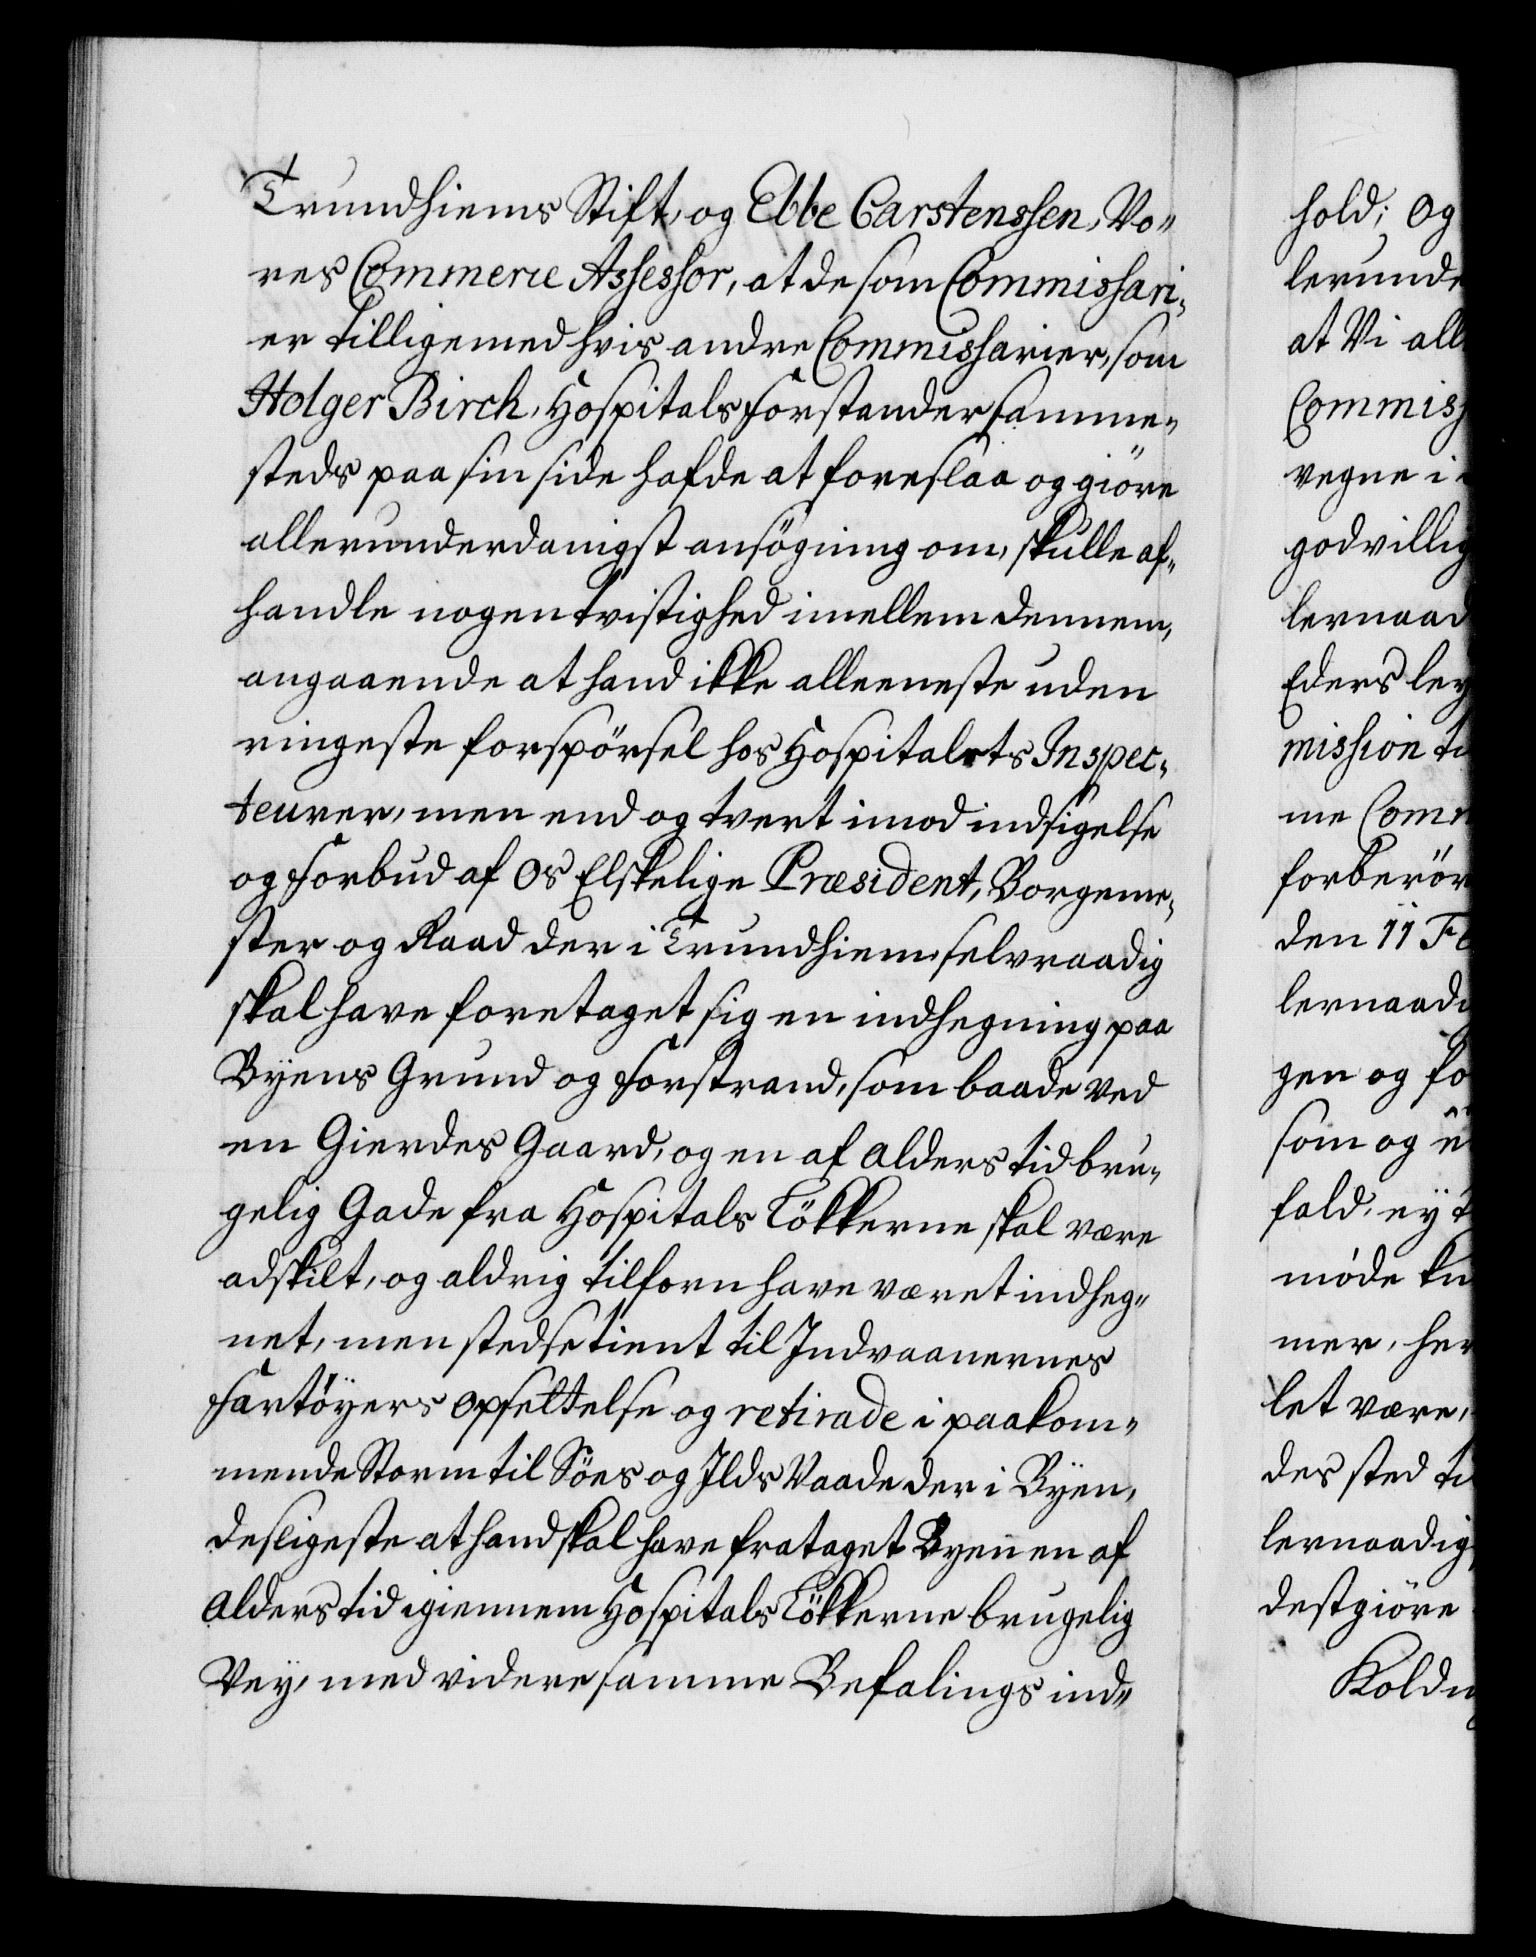 Trundhiems Stift, og Ebbe Carstenssen, Vo„
res Commerie Assessor, at de som Commissari„
er tilligemed hvis andre Commissarier, som
Holger Birch, Hospitals Forstander samme„
steds paa sin side hafde at foreslaa og giöre
allerunderdanigst ansögning om, skulle af„
handle nogen tvistighed imellem dennem,
angaaende at hand ikke alleeneste uden
ringeste forspörsel hos Hospitalets Inspec„
teurer, men end og tvert imod indsigelse
og Forbud af Os Elskelige Præsident, Borgeme„
ster og Raad der i Trundhiem, selvraadig
skal have foretaget sig en indhegning paa
Byens Grund og Forstrand, som baade ved
en Gierdes Gaard, og en af Alders tid bru„
gelig Gade fra Hospitals Lökkerne skal være
adskilt, og aldrig tilforn have været indheg„
net, men stedse tient til Indvaanernes
Fartöyers opsettelse og retirade i paakom„
mende Storm til Söes og Ilds Vaade der i Byen,
desligeste at hand skal have frataget Byen en af
Alders tid igiennem Hospitals Lökkerne brugelig
Vey, med videre samme Befalings ind„
hold; Og
lerunde
at Vi all
Commiss
vegne i
godvillig
lernaad
Eders ley
mission ti
me Comm
forberör
den 11 Fe
lernaadi
gen og fo
som og
fald, ey t
möde ku
mer, her
let være,
des sted ti
lernaadig
destgiöre
Koldn